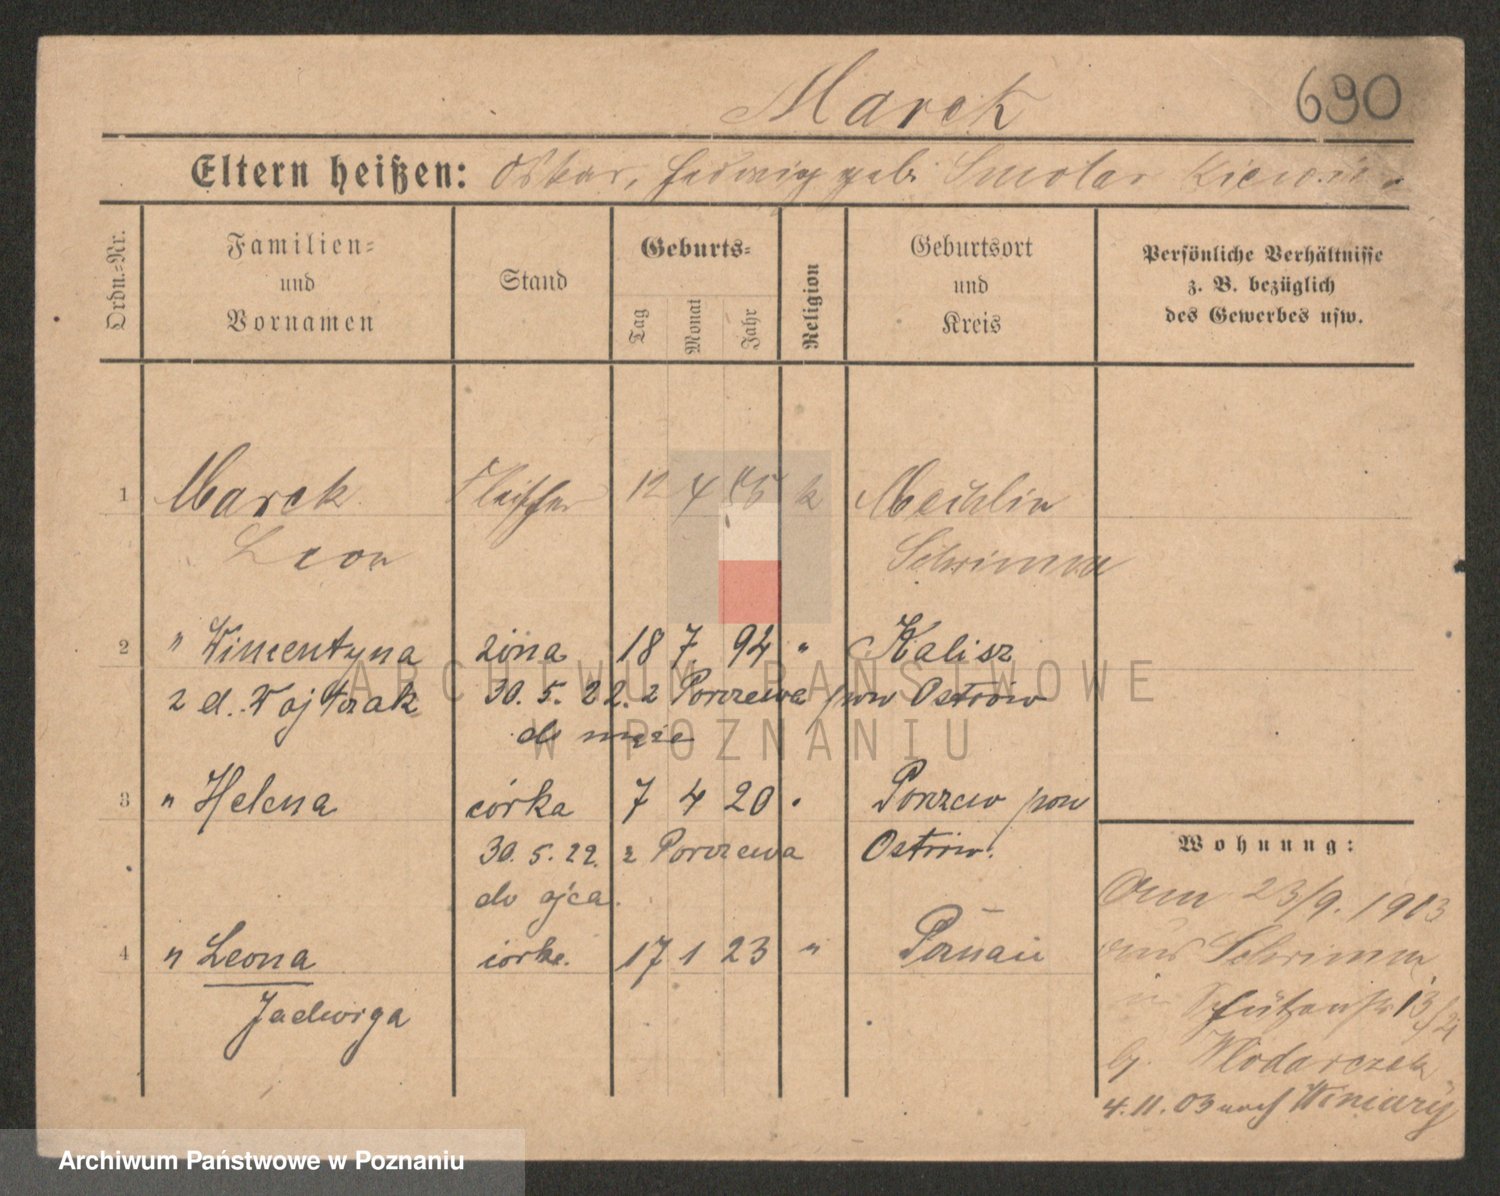 Marek
690
Eltern heißen: Oskar, Hedwig geb. Smolar
Ordn.=Nr.
Familien=
und
Vornamen
Stand
Geburts=
Tag
Monat
Jahr
Religion
Geburtsort
und
Kreis
Persönliche Verhältnisse
z. B. bezüglich
des Gewerbes usw.
1 Marek Fleischer 12 4 k Mechlin
Leon Schrimm
2 " Wincentyna żona 18 7 94 " Kalisz
z d. Wojtczak 30. 5. 22. z Porzewa pow Ostrów
do męża
3 " Helena córka 7 4 20 " Porzew pow
30. 5. 22. z Porzewa Ostrów.
do ojca.
4 " Leona córka. 17 1 23 " Poznań
Jadwiga
Wohnung:
23/9. 1903
aus Schrimm
in Schützenstr 13
b. Wlodarczak
4. 11. 03 nach Winiary
ARCHIWUM PAŃSTWOWE
W POZNANIU
Archiwum Państwowe w Poznaniu